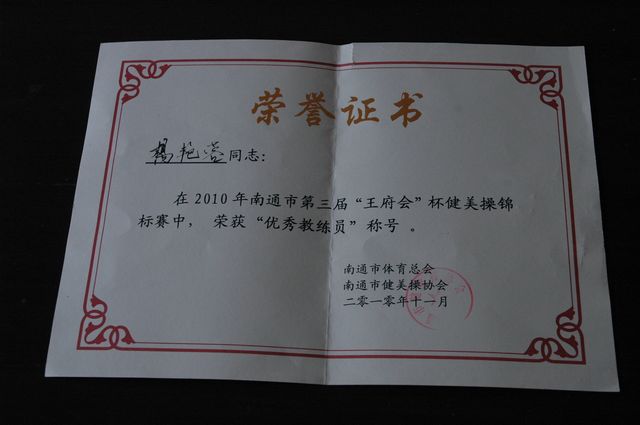 荣誉证书
楊艳蓉同志：
在2010年南通市第三届“王府会”杯健美操锦
标赛中， 荣获“优秀教练员”称号 。
南通市体育总会
南通市健美操协会
二零一零年十一月